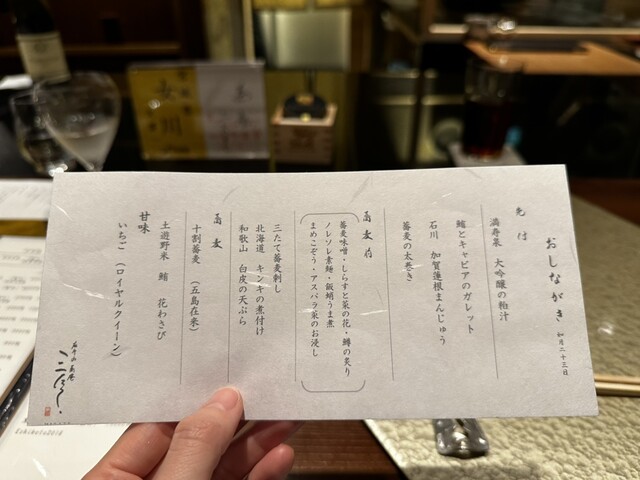 おしながき
二十三日
先付
満寿泉 大吟醸の粕汁
鰆とキャビアのガレット
石川 加賀蓮根まんじゅう
蕎麦の太巻き
蕎麦味噌・しらすと菜の花・鱒の炙り
ノレソレ素麺・飯蛸うま煮
まめこぞう・アスパラ菜のお浸し
三たて蕎麦刺し
北海道 キンキの煮付け
和歌山 白皮の天ぷら
蕎麦
十割蕎麦 (五島在来)
土遊野米 鰆 花わさび
甘味
いちご (ロイヤルクイーン)